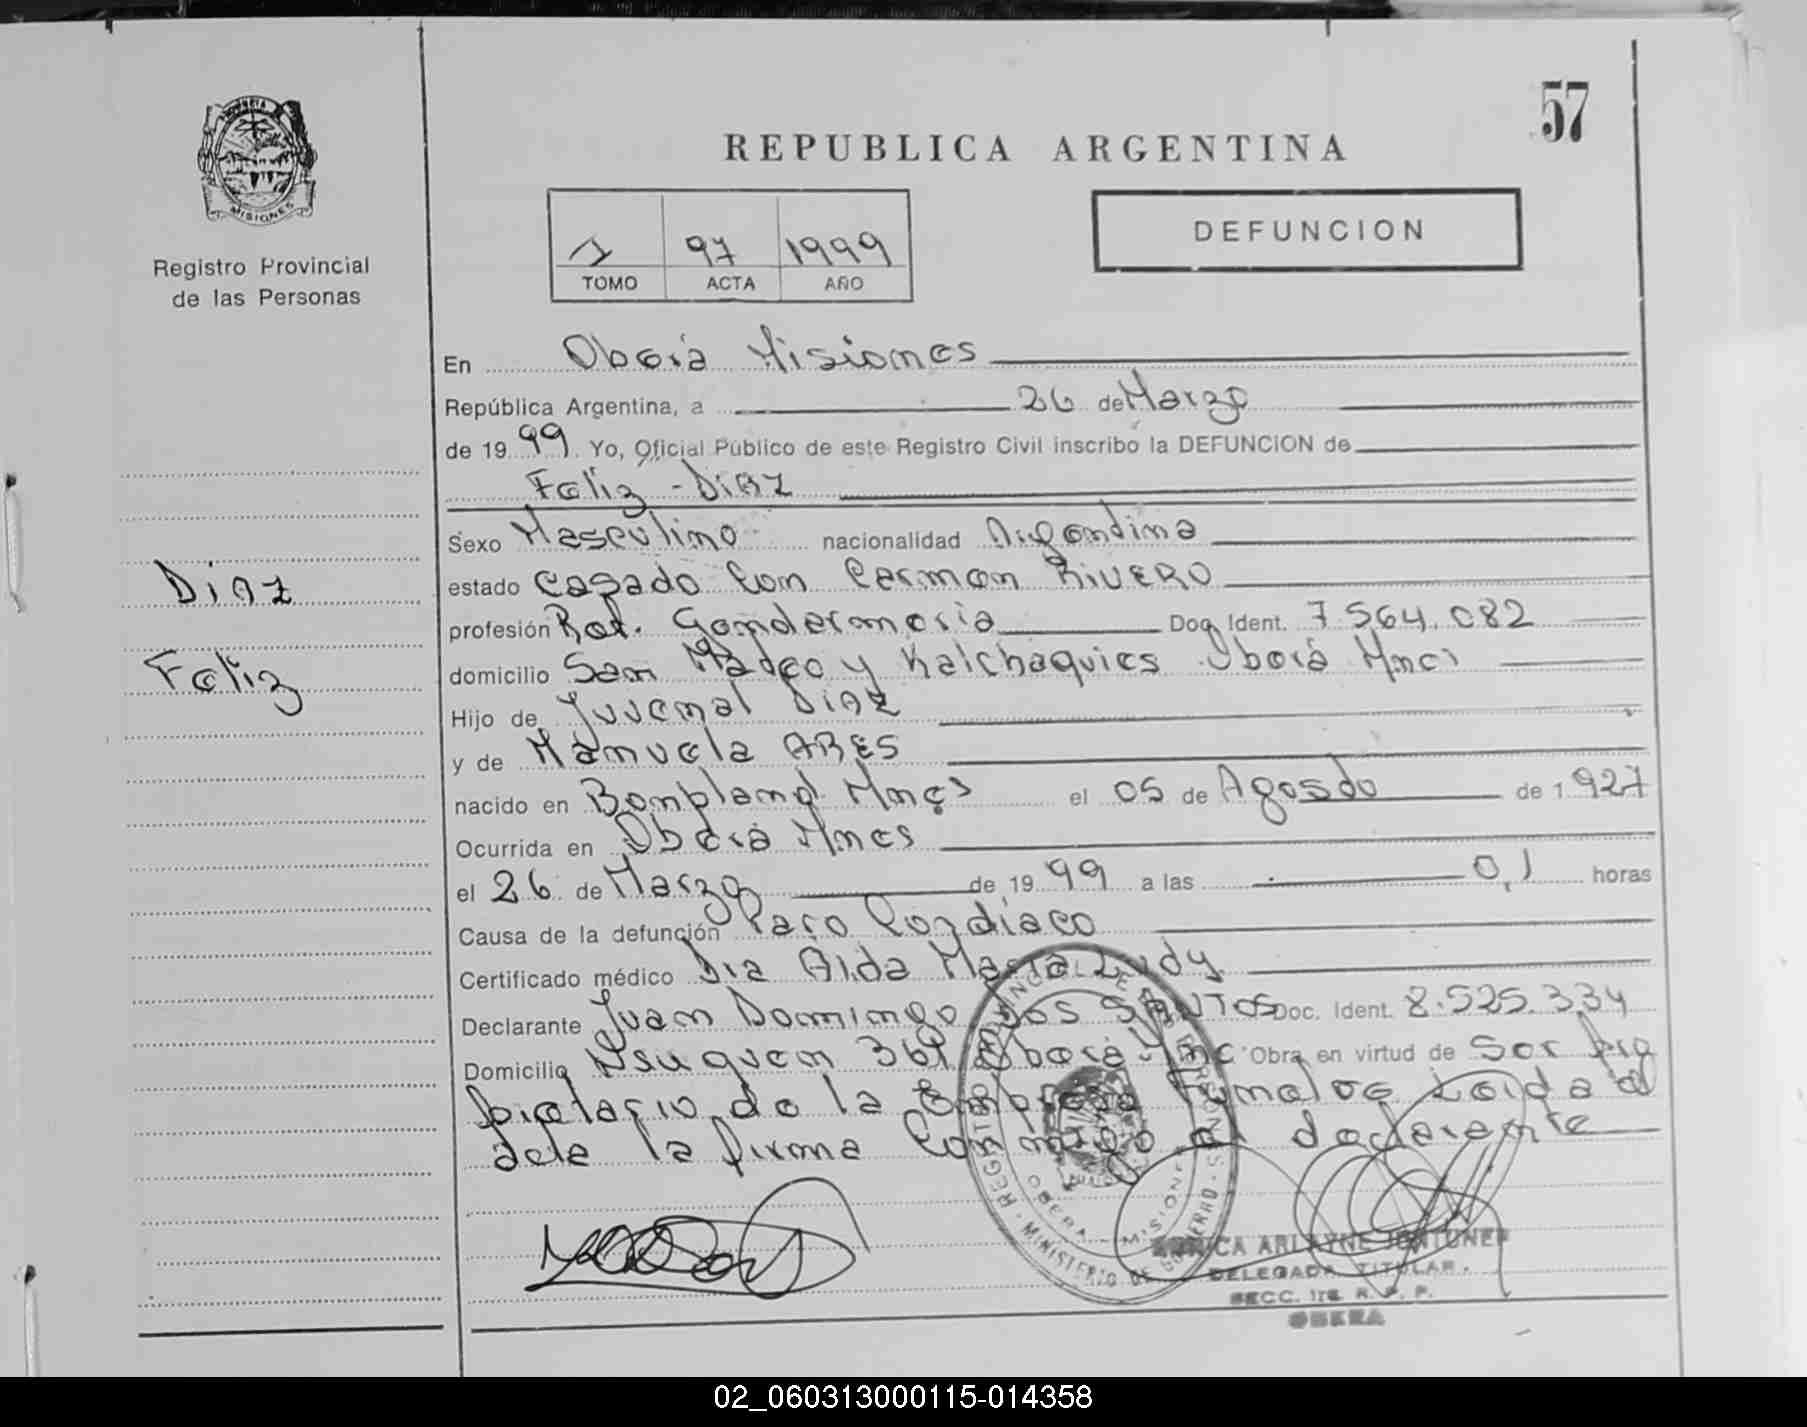 57
REPUBLICA ARGENTINA
MISIONES
Registro Provincial
de las Personas
1 97 1999
TOMO ACTA AÑO
DEFUNCION
En Oberá Misiones
República Argentina, a 26 de Marzo
de 1999. Yo, Oficial Público de este Registro Civil inscribo la DEFUNCION de
Feliz - DIAZ
Sexo Masculino nacionalidad Argentina
estado Casado Con Carmen RIVERO
profesión Ret. Gendarmeria Doc. Ident. 7.564.082
domicilio San Mateo y Kalchaquies Oberá Mnes
Hijo de Juvenal DIAZ
y de Manuela ARES
nacido en Bompland Mnes el 05 de Agosto de 1927
Ocurrida en Oberá Mnes
el 26 de Marzo de 1999 a las 0,1 horas
Causa de la defunción Paro Cardíaco
Certificado médico Dra Alda Maria Ludy
Declarante Juan Domingo DOS SANTOS Doc. Ident. 8.525.334
Domicilio Neuquen 361 Oberá Mnes Obra en virtud de Ser Pro
pietario de la Empresa Leida el
acta la firma Conmigo el declarante
DIAZ
Feliz
DELEGADA TITULAR
SECC. 1ra R. P. P.
OBERA
02_060313000115-014358